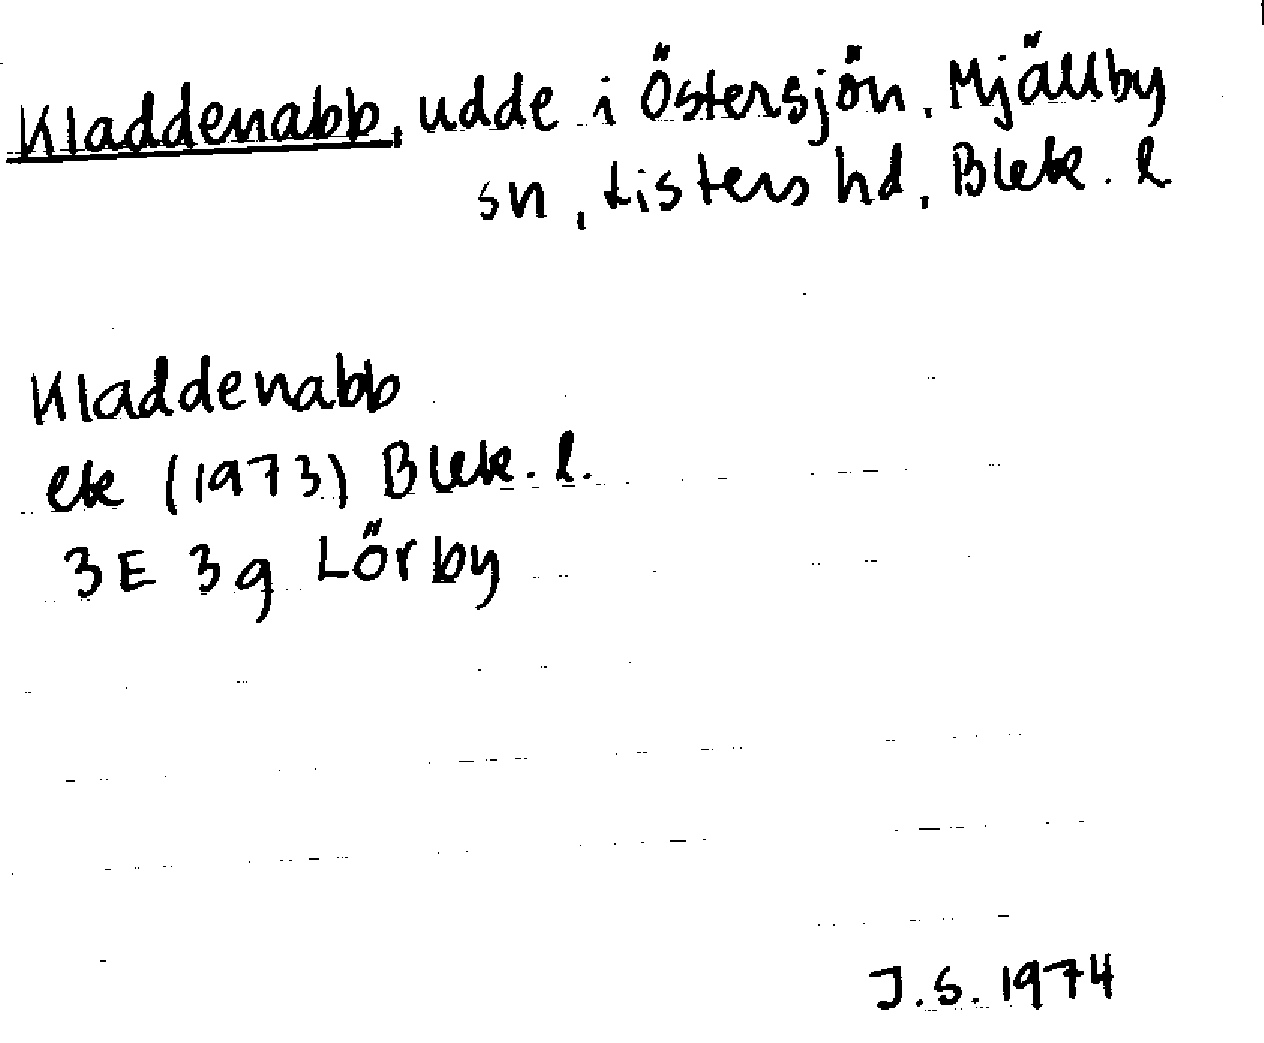 Kladdenabb, udde i Östersjön, Mjällby
sn, Listers hd, Blek. l
Kladdenabb
ek (1973) Blek. l.
3E 3g Lörby
J.S. 1974